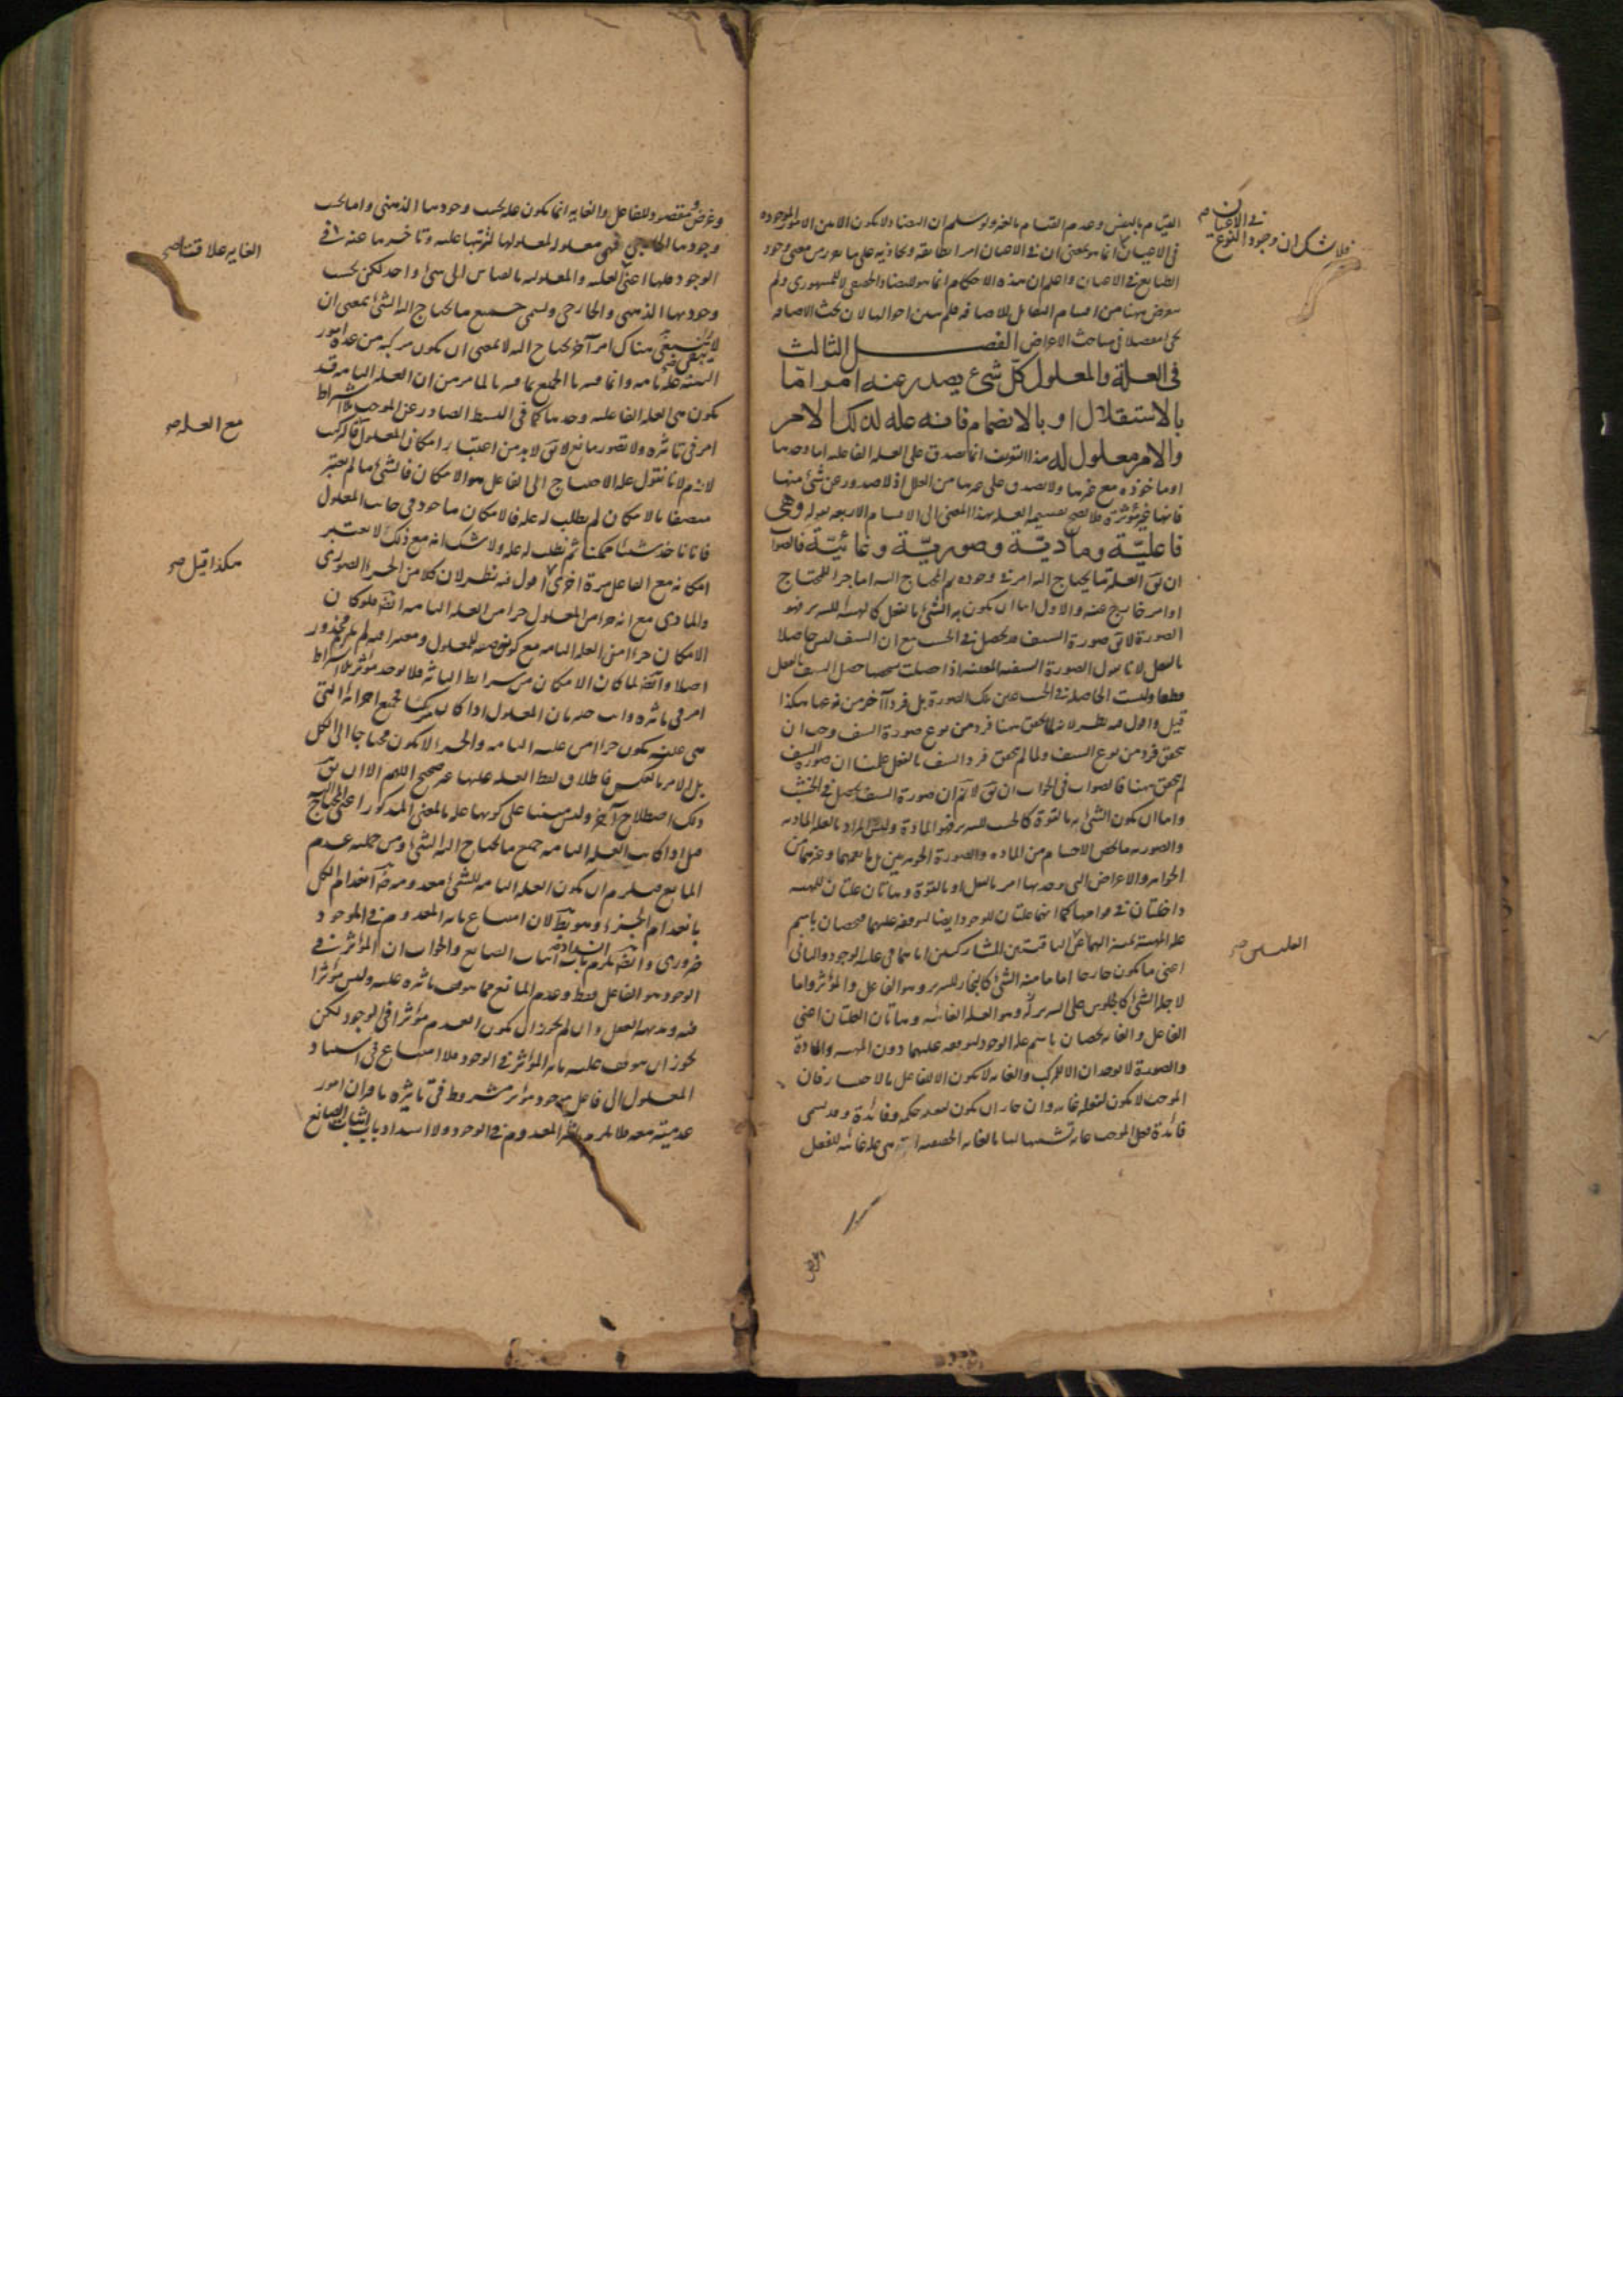 القيام بالبعض وعدم القيام بالغير ولو سلم ان التضاد لا يكون الا بين الامور الموجودة
في الاعيان انما هو بمعنى ان في الاعيان امرا يطابقه ويحاذيه على ما هو من معنى وجود
الطبايع في الاعيان واعلم ان هذه الاحكام انما هو للتضاد الحقيقي لا المشهوري ولم
يتعرض ههنا من اقسام التقابل للاضافة فلم يبين احوالها لان بحث الاضافة
يجئ مفصلا في مباحث الاعراض الفصل الثالث
في العلة والمعلول كل شئ يصدر عنه امر اما
بالاستقلال او بالانضمام فانه علة لذلك الامر
والامر معلول له هذا التعريف انما يصدق على العلة الفاعلة اما وحدها
او ماخوذة مع غيرها ولا يصدق على غيرها من العلل اذ لا صدور عن شئ منها
فانها غير مؤثرة فلا يصح تقسيم العلة بهذا المعنى الى الاقسام الاربعة بقوله وهي
فاعلية ومادية وصورية وغائية فالصواب
ان يق العلة ما يحتاج اليه امر في وجوده ثم المحتاج اليه اما جزء للمحتاج
او امر خارج عنه والاول اما ان يكون به الشئ بالفعل كالهيئة للسرير فهو
الصورة لا يق صورة السيف قد يحصل في الخشب مع ان السيف ليس حاصلا
بالفعل لانا نقول الصورة السيفية المعينة اذا حصلت شخصها حصل السيف بالفعل
قطعا وليست الحاصلة في الخشب عين تلك الصورة بل فردا آخر من نوعها هكذا
قيل واقول فيه نظر لانه اذا تحقق هنا فرد من نوع صورة السيف وجب ان
يتحقق فرد من نوع السيف ولما لم يتحقق فرد السيف بالفعل علمنا ان صورة السيف
لم يتحقق ههنا فالصواب في الجواب ان يق لا نم ان صورة السيف يحصل في الخشب
واما ان يكون الشئ به بالقوة كالخشب للسرير فهو المادة وليس المراد بالعلة المادية
والصورية ما يخص الاجسام من المادة والصورة الجوهريتين بل ما يعمهما وغيرهما من
الجواهر والاعراض التي يوجد بها امر بالفعل او بالقوة وهاتان علتان للماهية
داخلتان في قوامها كما انهما علتان للوجود ايضا لتوقفه عليهما فيخصان باسم
علة الماهية تمييزا لهما عن الباقيتين المشاركتين اياهما في علة الوجود والثاني
اعني ما يكون خارجا اما ما منه الشئ كالنجار للسرير وهو الفاعل والمؤثر واما
لاجله الشئ كالجلوس على السرير له وهو العلة الغائية وهاتان العلتان اعني
الفاعل والغاية يخصان باسم علة الوجود لتوقفه عليهما دون الماهية والمادة
والصورة لا توجدان الا للمركب والغاية لا تكون الا لفاعل بالاختيار فان
الموجب لا يكون لفعله غاية وان جاز ان يكون لفعله حكمة وفائدة وقد يسمى
فائدة فعل الموجب غاية تشبيها لها بالغاية الحقيقية التي هي علة غائية للفعل
في الاعيان صح
فلا شك ان وجود النوع
العلتين صح
وغرض ومقصود للفاعل والغاية انما تكون علة بحسب وجودها الذهني واما بحسب
وجودها الخارجي فهي معلولة لمعلولها لترتبها عليه وتاخرها عنه في
الوجود فلها اعني العلية والمعلولية بالقياس الى شئ واحد لكن بحسب
وجوديها الذهني والخارجي ويسمى جميع ما يحتاج اليه الشئ بمعنى ان
لا يبقى هناك امر آخر يحتاج اليه لا بمعنى ان يكون مركبة من عدة امور
البتة علة تامة وانما فسرنا الجميع بما فسرنا لما مر من ان العلة التامة قد
تكون هي العلة الفاعلية وحدها كما في البسيط الصادر عن الموجب بلا اشتراط
امر في تاثيره ولا تصور مانع لا يق لابد من اعتبار امكان المعلول فالتركيب
لازم لانا نقول علة الاحتياج الى الفاعل هو الامكان فالشئ ما لم يعتبر
متصفا بالامكان لم يطلب له علة فالامكان ماخوذ في جانب المعلول
فانا ناخذ شيئا ممكنا ثم نطلب له علة ولا شك انه مع ذلك لا يعتبر
امكانه مع الفاعل مرة اخرى اقول فيه نظر لان كلا من الجزء الصوري
والمادي مع انه جزء من المعلول جزء من العلة التامة ايضا فلو كان
الامكان جزءا من العلة التامة مع كونه صفة للمعلول ومعتبرا فيه لم يلزم محذور
اصلا وايضا لما كان الامكان من شرايط التاثير فلا يوجد مؤثر بلا اشتراط
امر في تاثيره واعترض بان المعلول اذا كان مركبا فجميع اجزائه التي
هي عينه يكون جزءا من علته التامة والجزء لا يكون محتاجا الى الكل
بل الامر بالعكس فاطلاق لفظ العلة عليها غير صحيح اللهم الا ان يق
ذلك اصطلاح آخر وليس مبنيا على كونها علة بالمعنى المذكور اعني المحتاج اليه
قيل اذا كانت العلة التامة جميع ما يحتاج اليه الشئ ومن جملته عدم
المانع فيلزم ان يكون العلة التامة للشئ معدومة ضرورة انعدام الكل
بانعدام الجزء وهو بط لان امتناع تاثير المعدوم في الموجود
ضروري وايضا يلزم انسداد باب اثبات الصانع والجواب ان المؤثر في
الوجود هو الفاعل فقط وعدم المانع مما يتوقف تاثيره عليه وليس مؤثرا
فيه وبديهة العقل وان لم تجوز ان يكون العدم مؤثرا في الوجود لكن
تجوز ان يتوقف عليه تاثير المؤثر في الوجود فلا امتناع في استناد
المعلول الى فاعل موجود مؤثر مشروط في تاثيره باقتران امور
عدمية معه فلا يلزم تاثير المعدوم في الوجود ولا انسداد باب اثبات الصانع
الغايه علاقتان صح
مع العلة صح
هكذا قيل صح